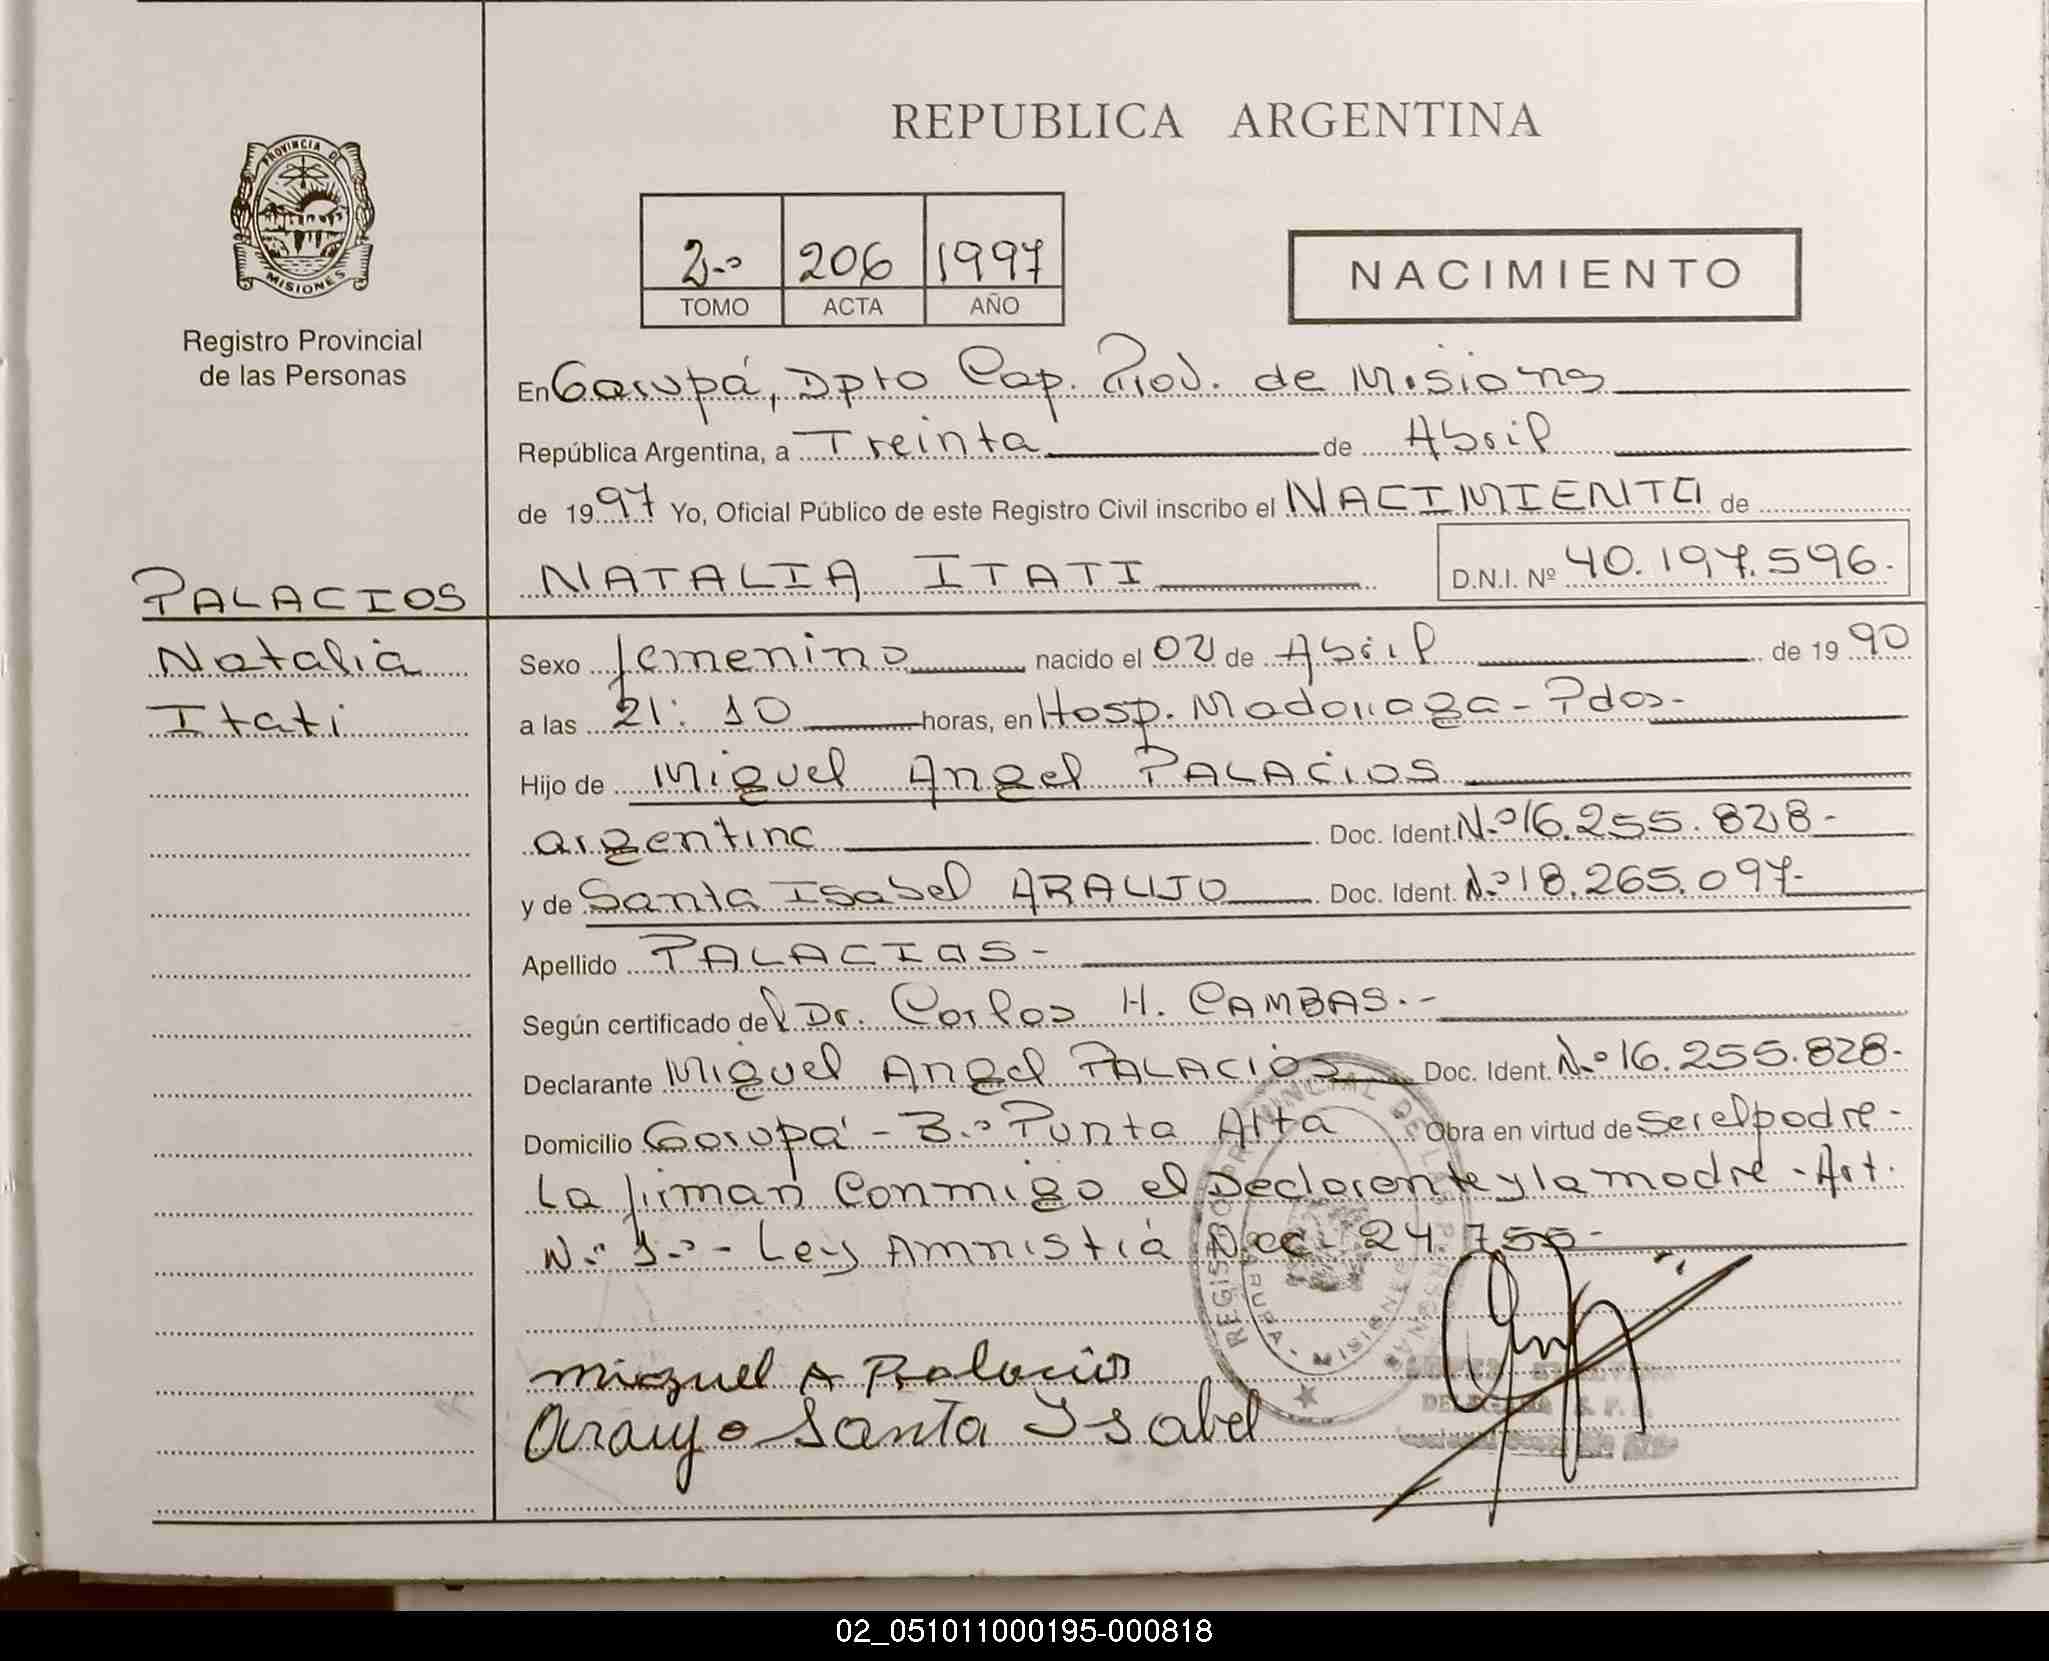 REPUBLICA ARGENTINA
PROVINCIA DE
MISIONES
Registro Provincial
de las Personas
2.º 206 1997
TOMO ACTA AÑO
NACIMIENTO
En Garupá, Dpto Cap. Prov. de Misiones
República Argentina, a Treinta de Abril
de 1997 Yo, Oficial Público de este Registro Civil inscribo el NACIMIENTO de
NATALIA ITATI D.N.I. Nº 40.197.596.
PALACIOS
Natalia
Itati
Sexo femenino nacido el 02 de Abril de 1990
a las 21:10 horas, en Hosp. Madariaga - Pdas-
Hijo de Miguel Angel PALACIOS
argentino Doc. Ident. N.º 16.255.828-
y de Santa Isabel ARAUJO Doc. Ident. N.º 18.265.097-
Apellido PALACIOS-
Según certificado del Dr. Carlos H. CAMBAS.-
Declarante Miguel Angel PALACIOS Doc. Ident. N.º 16.255.828-
Domicilio Garupá - B.º Punta Alta Obra en virtud de ser el padre-
La firman conmigo el Declarante y la madre - Art.
N.º 1.º - Ley Amnistiá Dec. 24.755-
REGISTRO PROVINCIAL DE LAS PERSONAS
GARUPA MISIONES
Miguel A Palacios
Araujo Santa Isabel
02_051011000195-000818